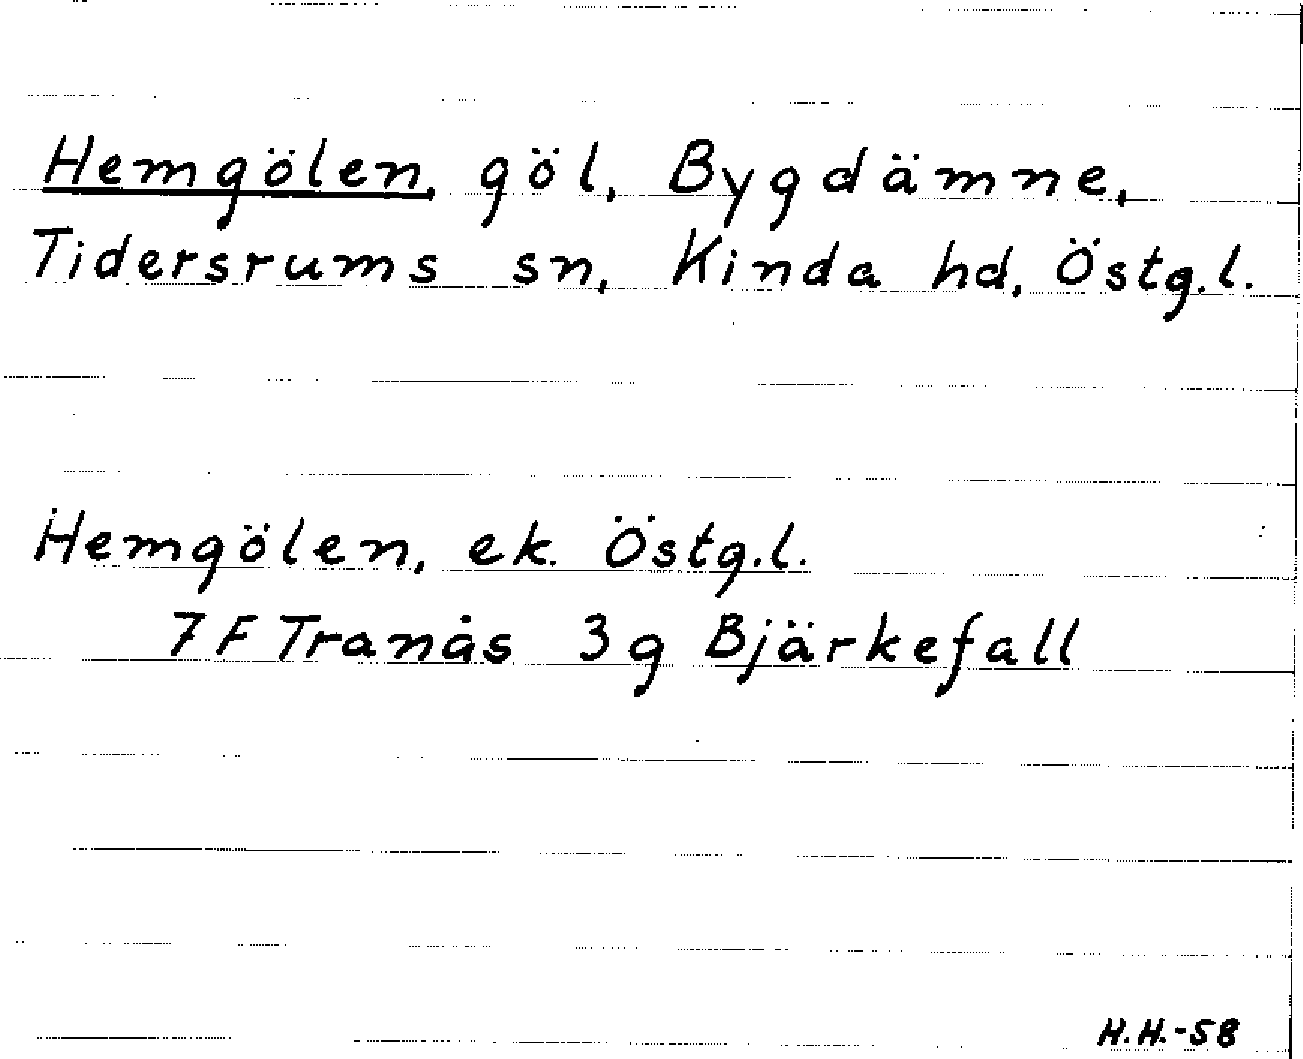 Hemgölen, göl, Bygdämne,
Tidersrums sn, Kinda hd, Östg.l.
Hemgölen, ek. Östg.l.
7 F Tranås 3g Bjärkefall
H.H.-58